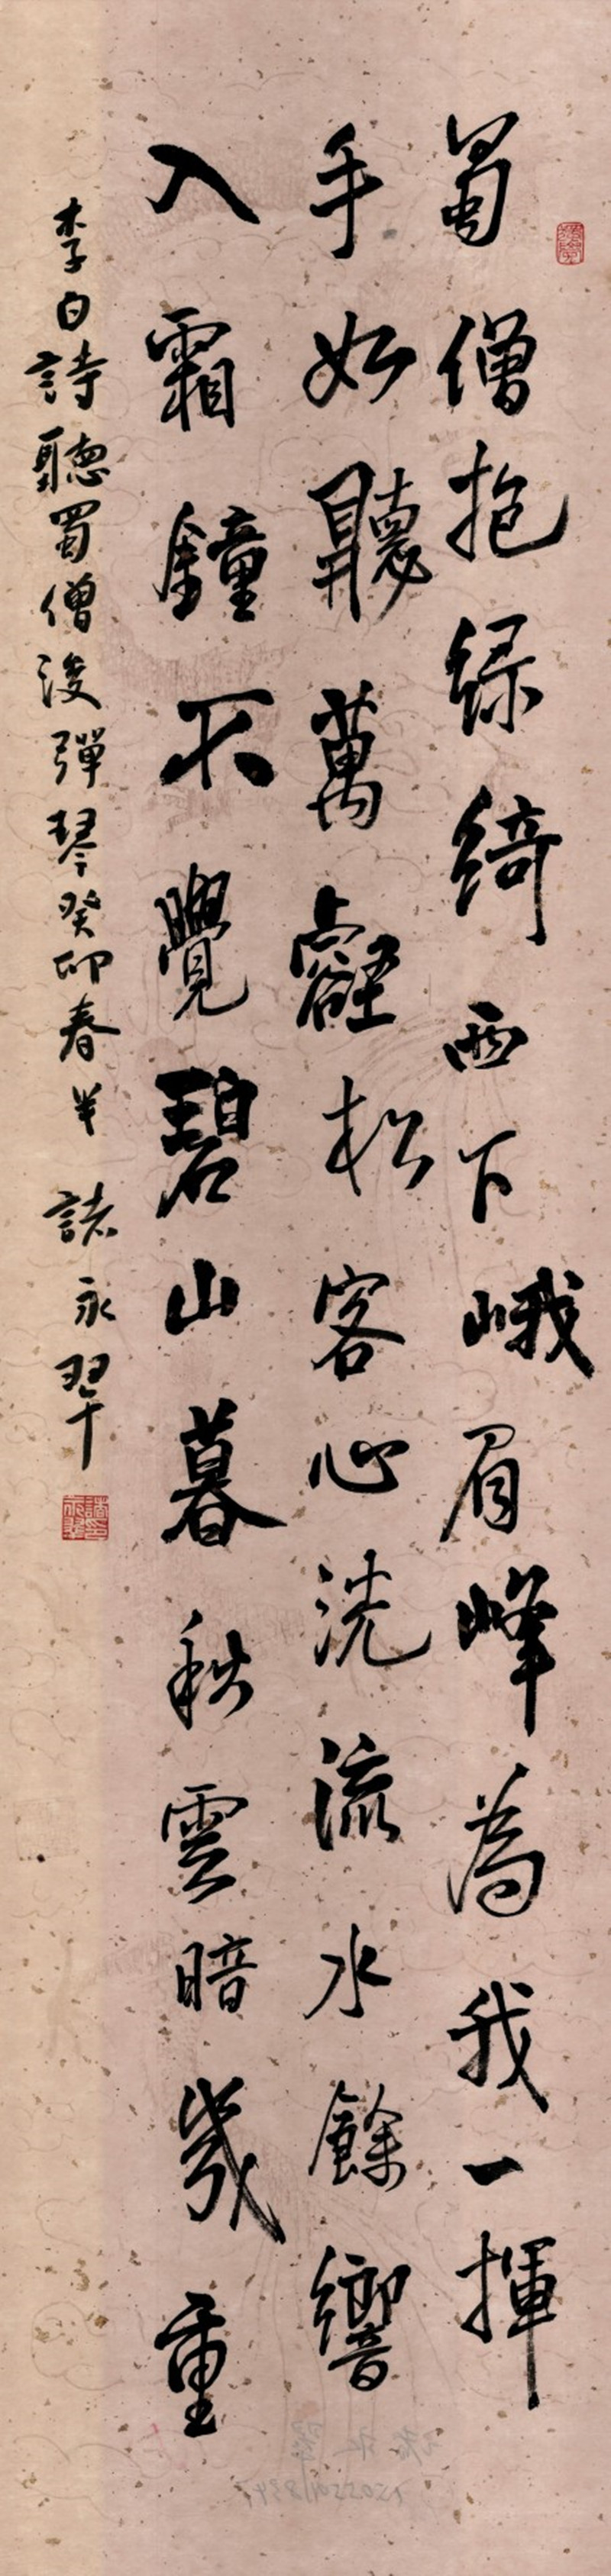 蜀僧抱綠綺西下峨眉峰為我一揮
手如聽萬壑松客心洗流水餘響
入霜鐘不覺碧山暮秋雲暗幾重
李白詩聽蜀僧浚彈琴癸卯春半 諸永翠